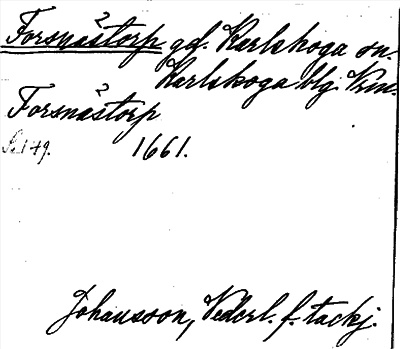 Forsnästorp gd. Karlskoga sn.
Karlskoga blg. Vrm.
Forsnästorp
1661.
Johansson, Vederl. f. tackj.